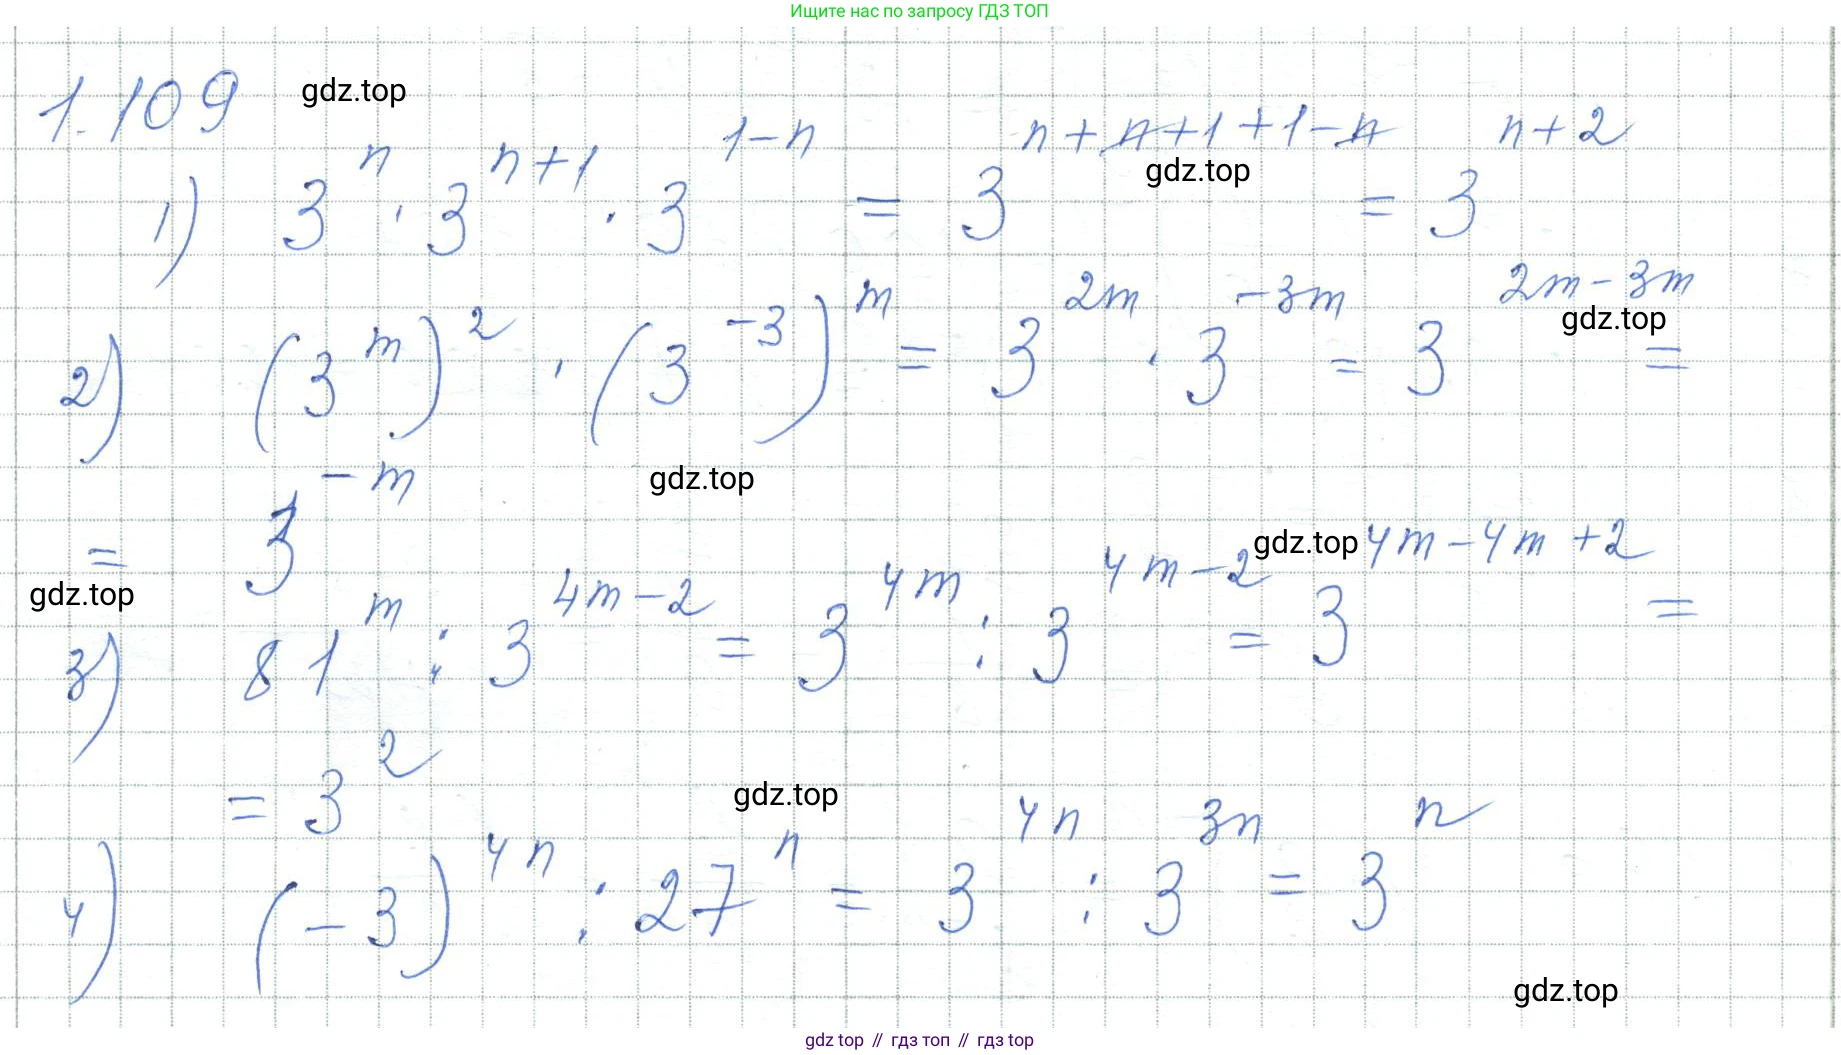 Ищите нас по запросу ГДЗ ТОП
1.109 gdz.top
1) 3^n · 3^{n+1} · 3^{1-n} = 3^{n+n+1+1-n} = 3^{n+2}
gdz.top
2) (3^m)^2 · (3^{-3})^m = 3^{2m} · 3^{-3m} = 3^{2m-3m} =
gdz.top
= 3^{-m}
gdz.top
gdz.top
gdz.top
3) 81^m : 3^{4m-2} = 3^{4m} : 3^{4m-2} = 3^{4m-4m+2} =
= 3^2
gdz.top
4) (-3)^{4n} : 27^n = 3^{4n} : 3^{3n} = 3^n
gdz.top
gdz top // гдз топ // гдз top